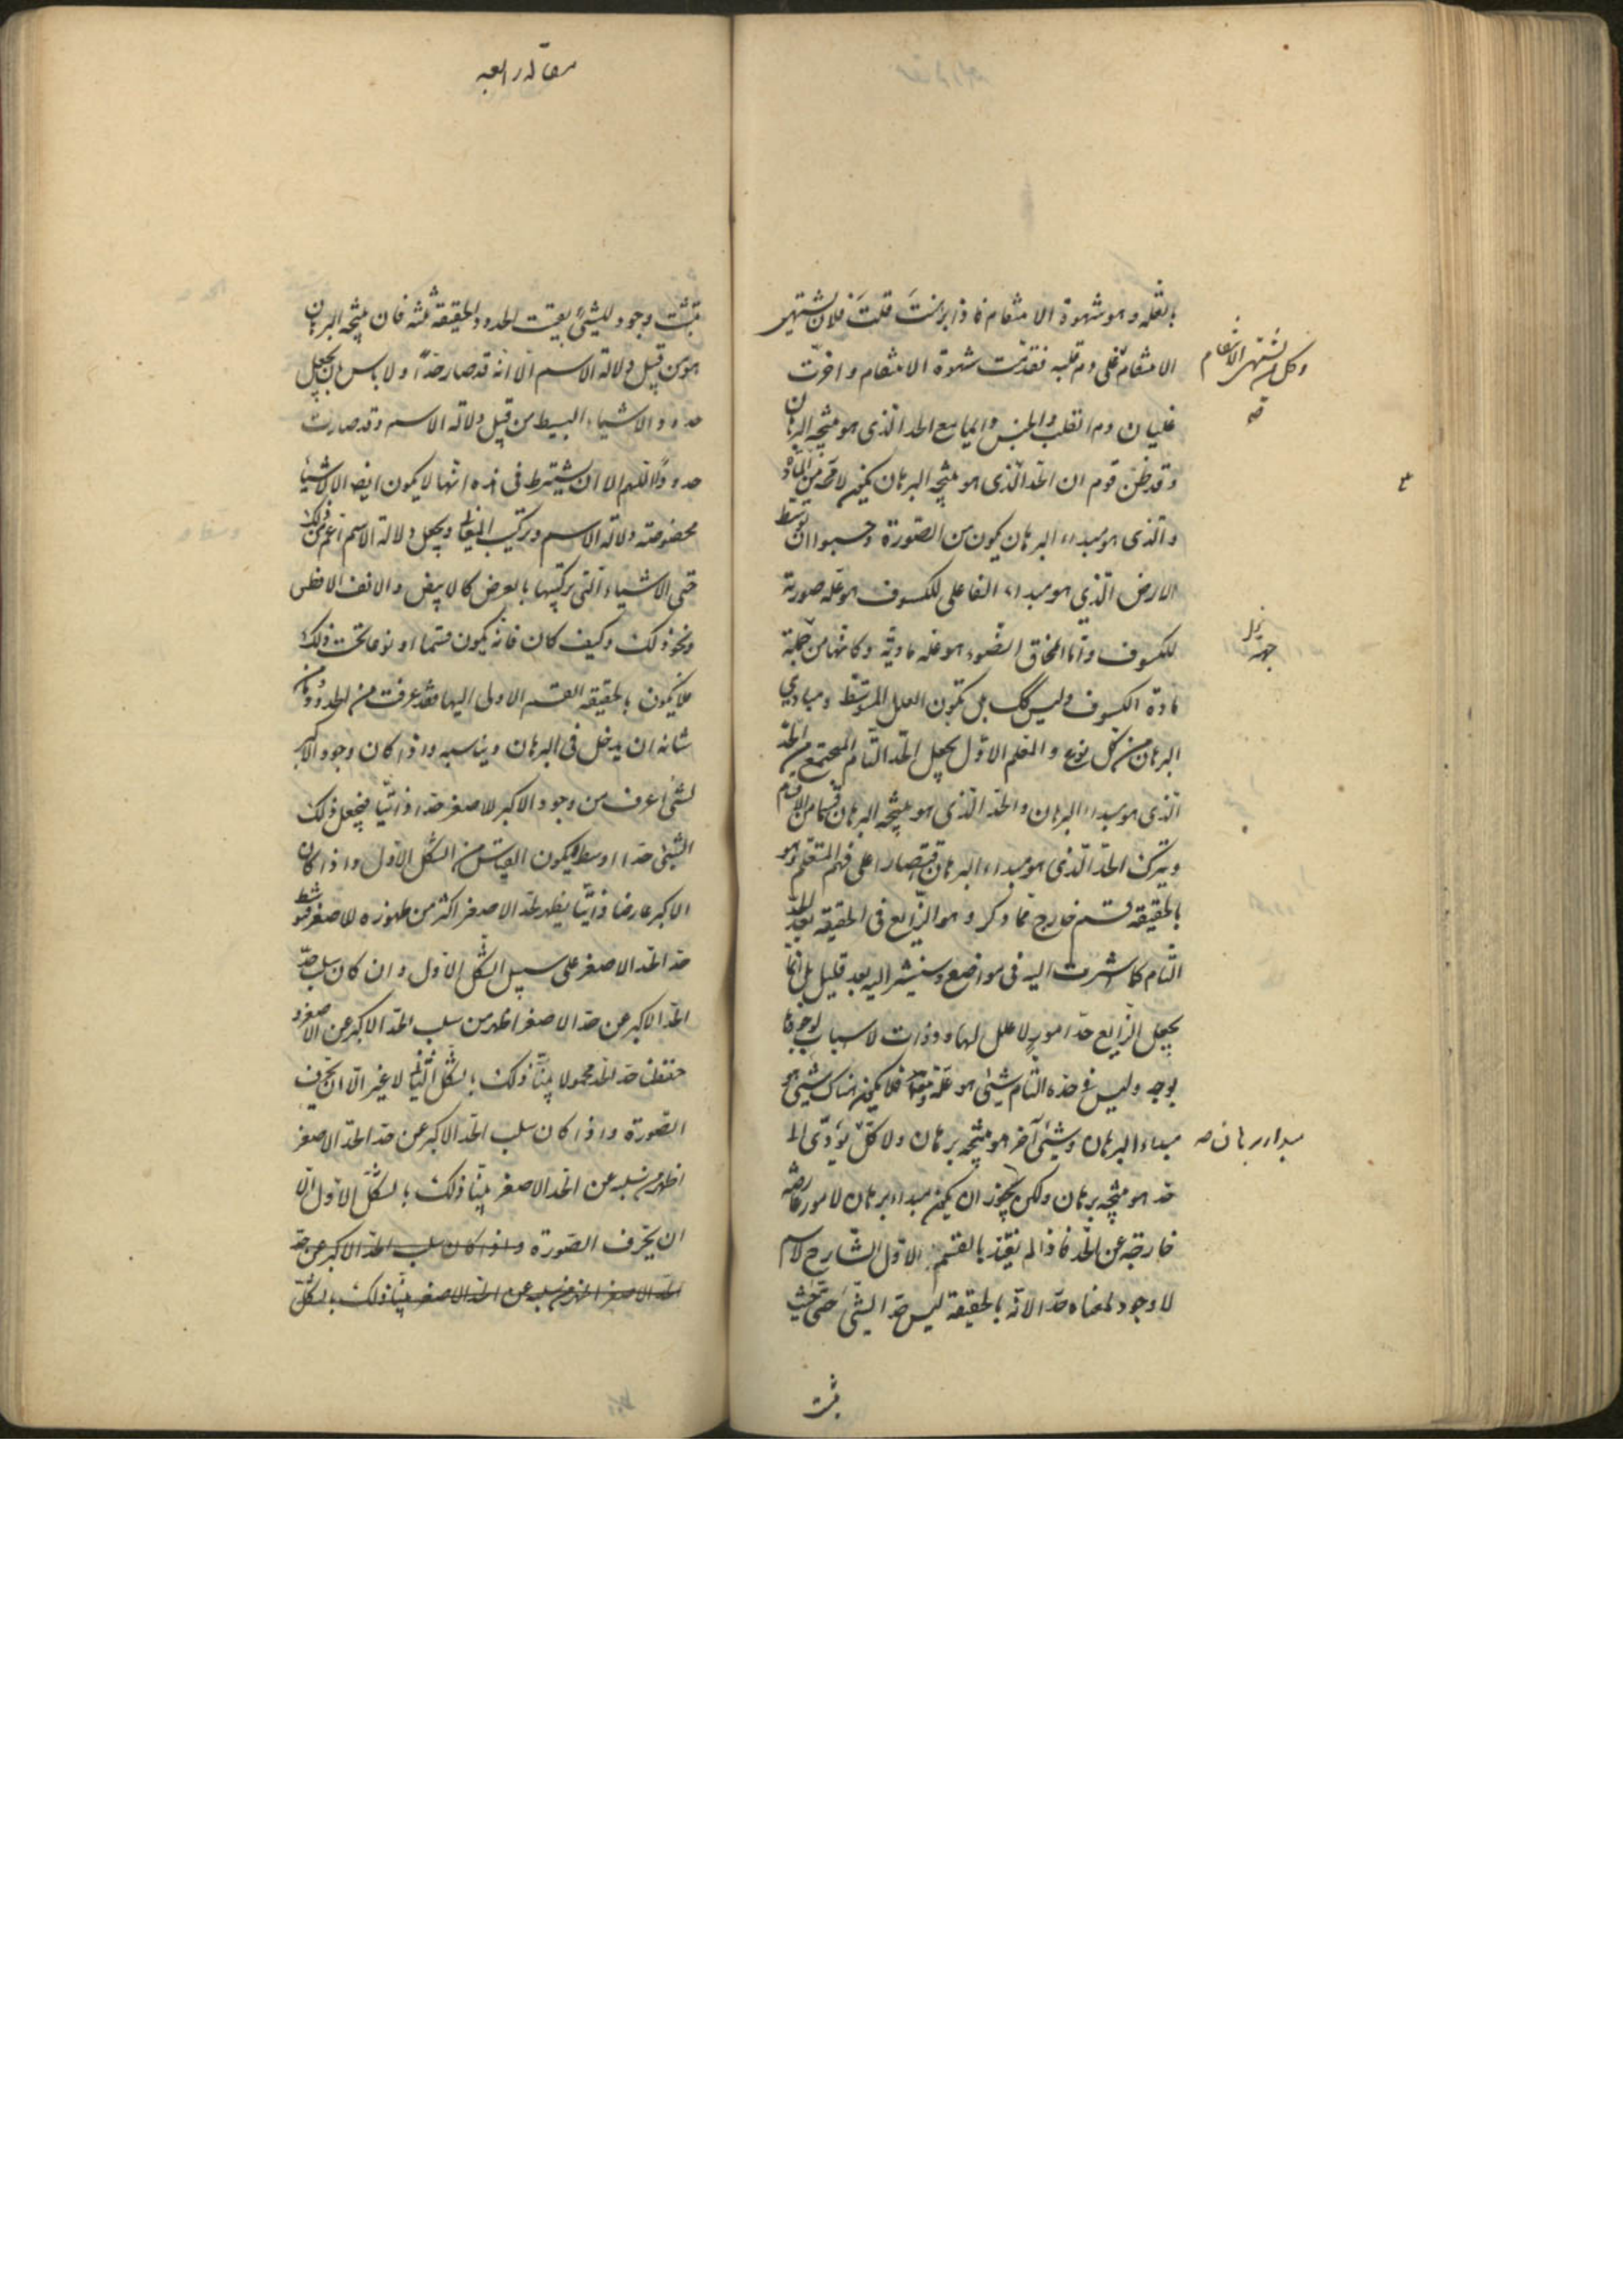 بالعلة وهو شهوة الانتقام فاذا برهنت قلت فلان يشتهى
الانتقام وكل من يشتهى الانتقام يغلى دم قلبه فقدمت شهوة الانتقام واخرت
غليان دم القلب والجنس والجامع الحد الذى هو نتيجة البرهان
وقد ظن قوم ان الحد الذى هو نتيجة البرهان يكون لا محة من المادة
والذى هو مبدء البرهان يكون من الصورة وحسبوا ان توسط
الارض الذي هو مبداء الفاعلى للكسوف هو علة صورية
للكسوف واما انمحاق الضوء هو علة مادية وكانها من جملة
مادة الكسوف وليس كك بل تكون العلل المتوسطة ومبادي
البرهان من كل نوع والمعلم الاول يجعل الحد التام المجتمع من الحد
الذى هو مبداء البرهان والحد الذى هو نتيجة البرهان قسما من الاقسام
ويترك الحد الذى هو مبداء البرهان اقتصارا على فهم المتعلم وهو
بالحقيقة قسم خارج مما ذكر وهو الرابع فى الحقيقة بعد الحد
التام كما اشرت اليه فى مواضع وسنشير اليه بعد قليل بل انما
يجعل الرابع حد امور لا علل لها وذوات لا سباب لوجودها
يوجد وليس فى حده التام شيئ هو علة فلا يكون هناك شيئ هو
مبداء البرهان وشيئ آخر هو نتيجة برهان ولا كل يؤدى الى
حد هو نتيجة برهان ولكن يجوز ان يكون مبداء برهان لامور عارضة
خارجة عن الحد فاذا لم نعتد بالقسم الاول الشارح لاسم
لا وجود لمعناه حد الانه بالحقيقة ليس حد الشئ حتى حيث
يثبت
وكل من يشتهى الانتقام
صه
جهة
مبداء برهان صه
مقاله رابعه
يثبت وجود للشئ بقيت الحدود الحقيقة ثلثه فان نتيجة البرهان
هو من قبيل دلالة الاسم الا انه قد صار حدا ولا باس بان يجعل
حدود الاشياء البسيط من قبيل دلالة الاسم وقد صارت
حدودا اللهم الا ان يشترط فى هذه انها لا يكون ايضا لاشياء
مخصوصة دلالة الاسم وتركيب اللفظ ويجعل دلالة الاسم اعم من ذلك
حتى الاشياء التى تركيبها بالعرض كالابيض والانف الافطس
ونحو ذلك وكيف كان فانه يكون قسما او نوعا تحت ذلك
فلا يكون بالحقيقه القسم الاولى اليها فقد عرفت من الحدود ما من
شانه ان يدخل فى البرهان ويناسبه واذا كان وجود الاكبر
لشئ اعرف من وجود الاكبر للاصغر حدا ذاتيا فيجعل ذلك
الشئ حدا اوسط فيكون القياس من الشكل الاول واذا كان
الاكبر عارضا ذاتيا يظهر لحد الاصغر اكثر من ظهوره للاصغر وسط
حد الحد الاصغر على سبيل الشكل الاول وان كان سلب حد
الحد الاكبر عن حد الاصغر اظهر من سلب الحد الاكبر عن الاصغر و
حفظنا حد الحد محمولا بينا ذلك بالشكل الثانى لا غير الا ان نحرف
الصورة واذا كان سلب الحد الاكبر عن حد الحد الاصغر
اظهر من سلبه عن الحد الاصغر بينا ذلك بالشكل الاول الا
ان يحرف الصورة واذا كان سلب الحد الاكبر عن حد
الحد الاصغر اظهر من سلبه عن الحد الاصغر بينا ذلك بالشكل